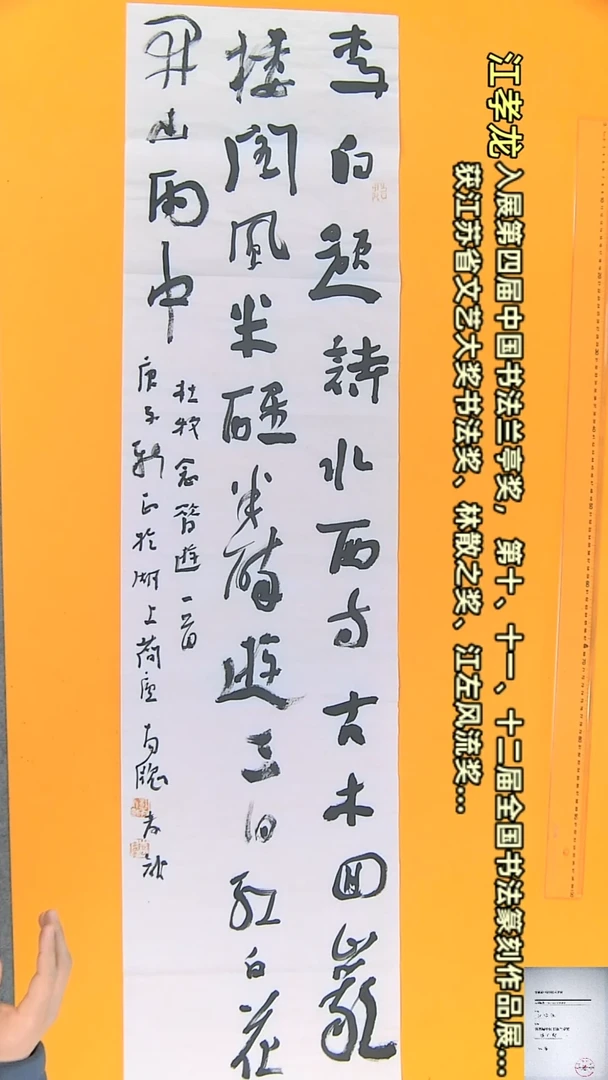 江孝龙 入展第四届中国书法兰亭奖，第十、十一、十二届全国书法篆刻作品展...
获江苏省文艺大奖书法奖、林散之奖、江左风流奖...
李白題詩水西寺古木回巖
樓閣風半醒半醉遊三日紅白花
開山雨中
杜牧念昔遊一首
庚子新正於湖上荷廬